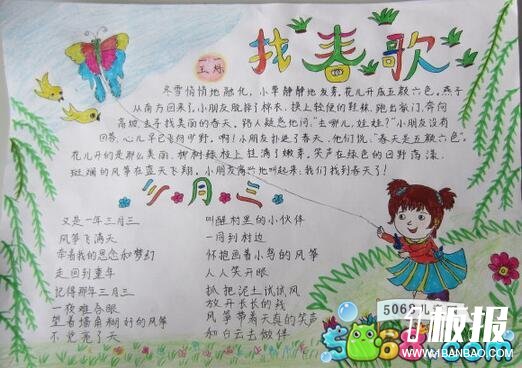 找春歌
冬雪悄悄地融化，小草静静地发芽。花儿开成五颜六色，燕子
从南方回来了。小朋友脱掉了棉衣，换上轻便的鞋袜，跑出家门，奔向
高坡，去寻找美丽的春天。路人疑惑地问："去哪儿，娃娃？"小朋友没有
回答，心儿早已飞向乡野。啊！小朋友扑进了春天，他们说："春天是五颜六色"。
花儿开的是那么美丽，柳树绿枝上挂满了嫩芽。笑声在绿色的田野荡漾，
斑斓的风筝在蓝天飞翔。小朋友高兴地叫起来，我们找到春天了！
三月三
又是一年三月三
风筝飞满天
牵着我的思念和梦幻
走回到童年
记得那年三月三
一夜难合眼
望着墙角糊好的风筝
不觉亮了天
叫醒村里的小伙伴
一同到村边
怀抱画着小鸟的风筝
人人笑开眼
抓把泥土试试风
放开长长的线
风筝带着天真的笑声
和白云去做伴
板报
WWW.1BANBAO.COM